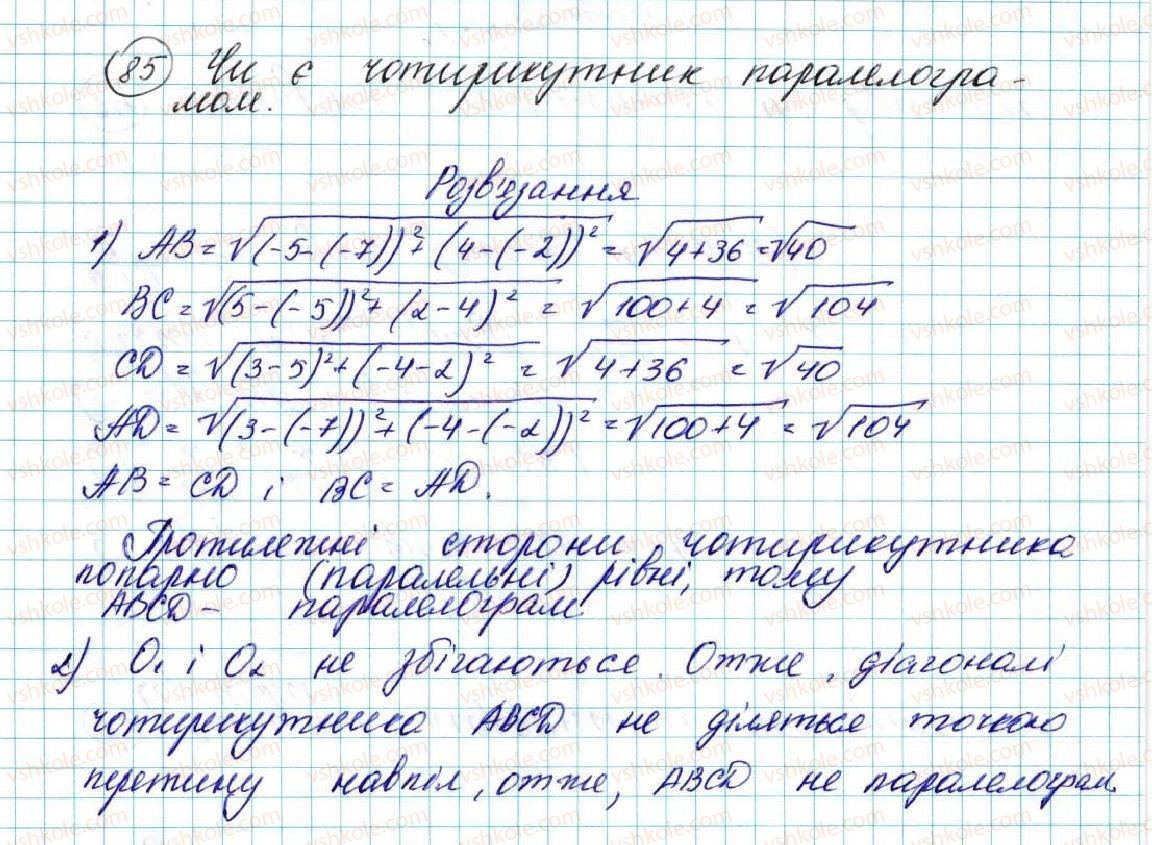 85 Чи є чотирикутник паралелогра-
мом.
Розв'язання
1) AB = √(-5-(-7))² + (4-(-2))² = √4+36 = √40
BC = √(5-(-5))² + (2-4)² = √100+4 = √104
CD = √(3-5)² + (-4-2)² = √4+36 = √40
AD = √(3-(-7))² + (-4-(-2))² = √100+4 = √104
AB = CD і BC = AD.
Протилежні сторони чотирикутника
попарно (паралельні) рівні, тому
ABCD - паралелограм
2) O₁ і O₂ не збігаються. Отже, діагоналі
чотирикутника ABCD не діляться точкою
перетину навпіл, отже, ABCD не паралелограм.